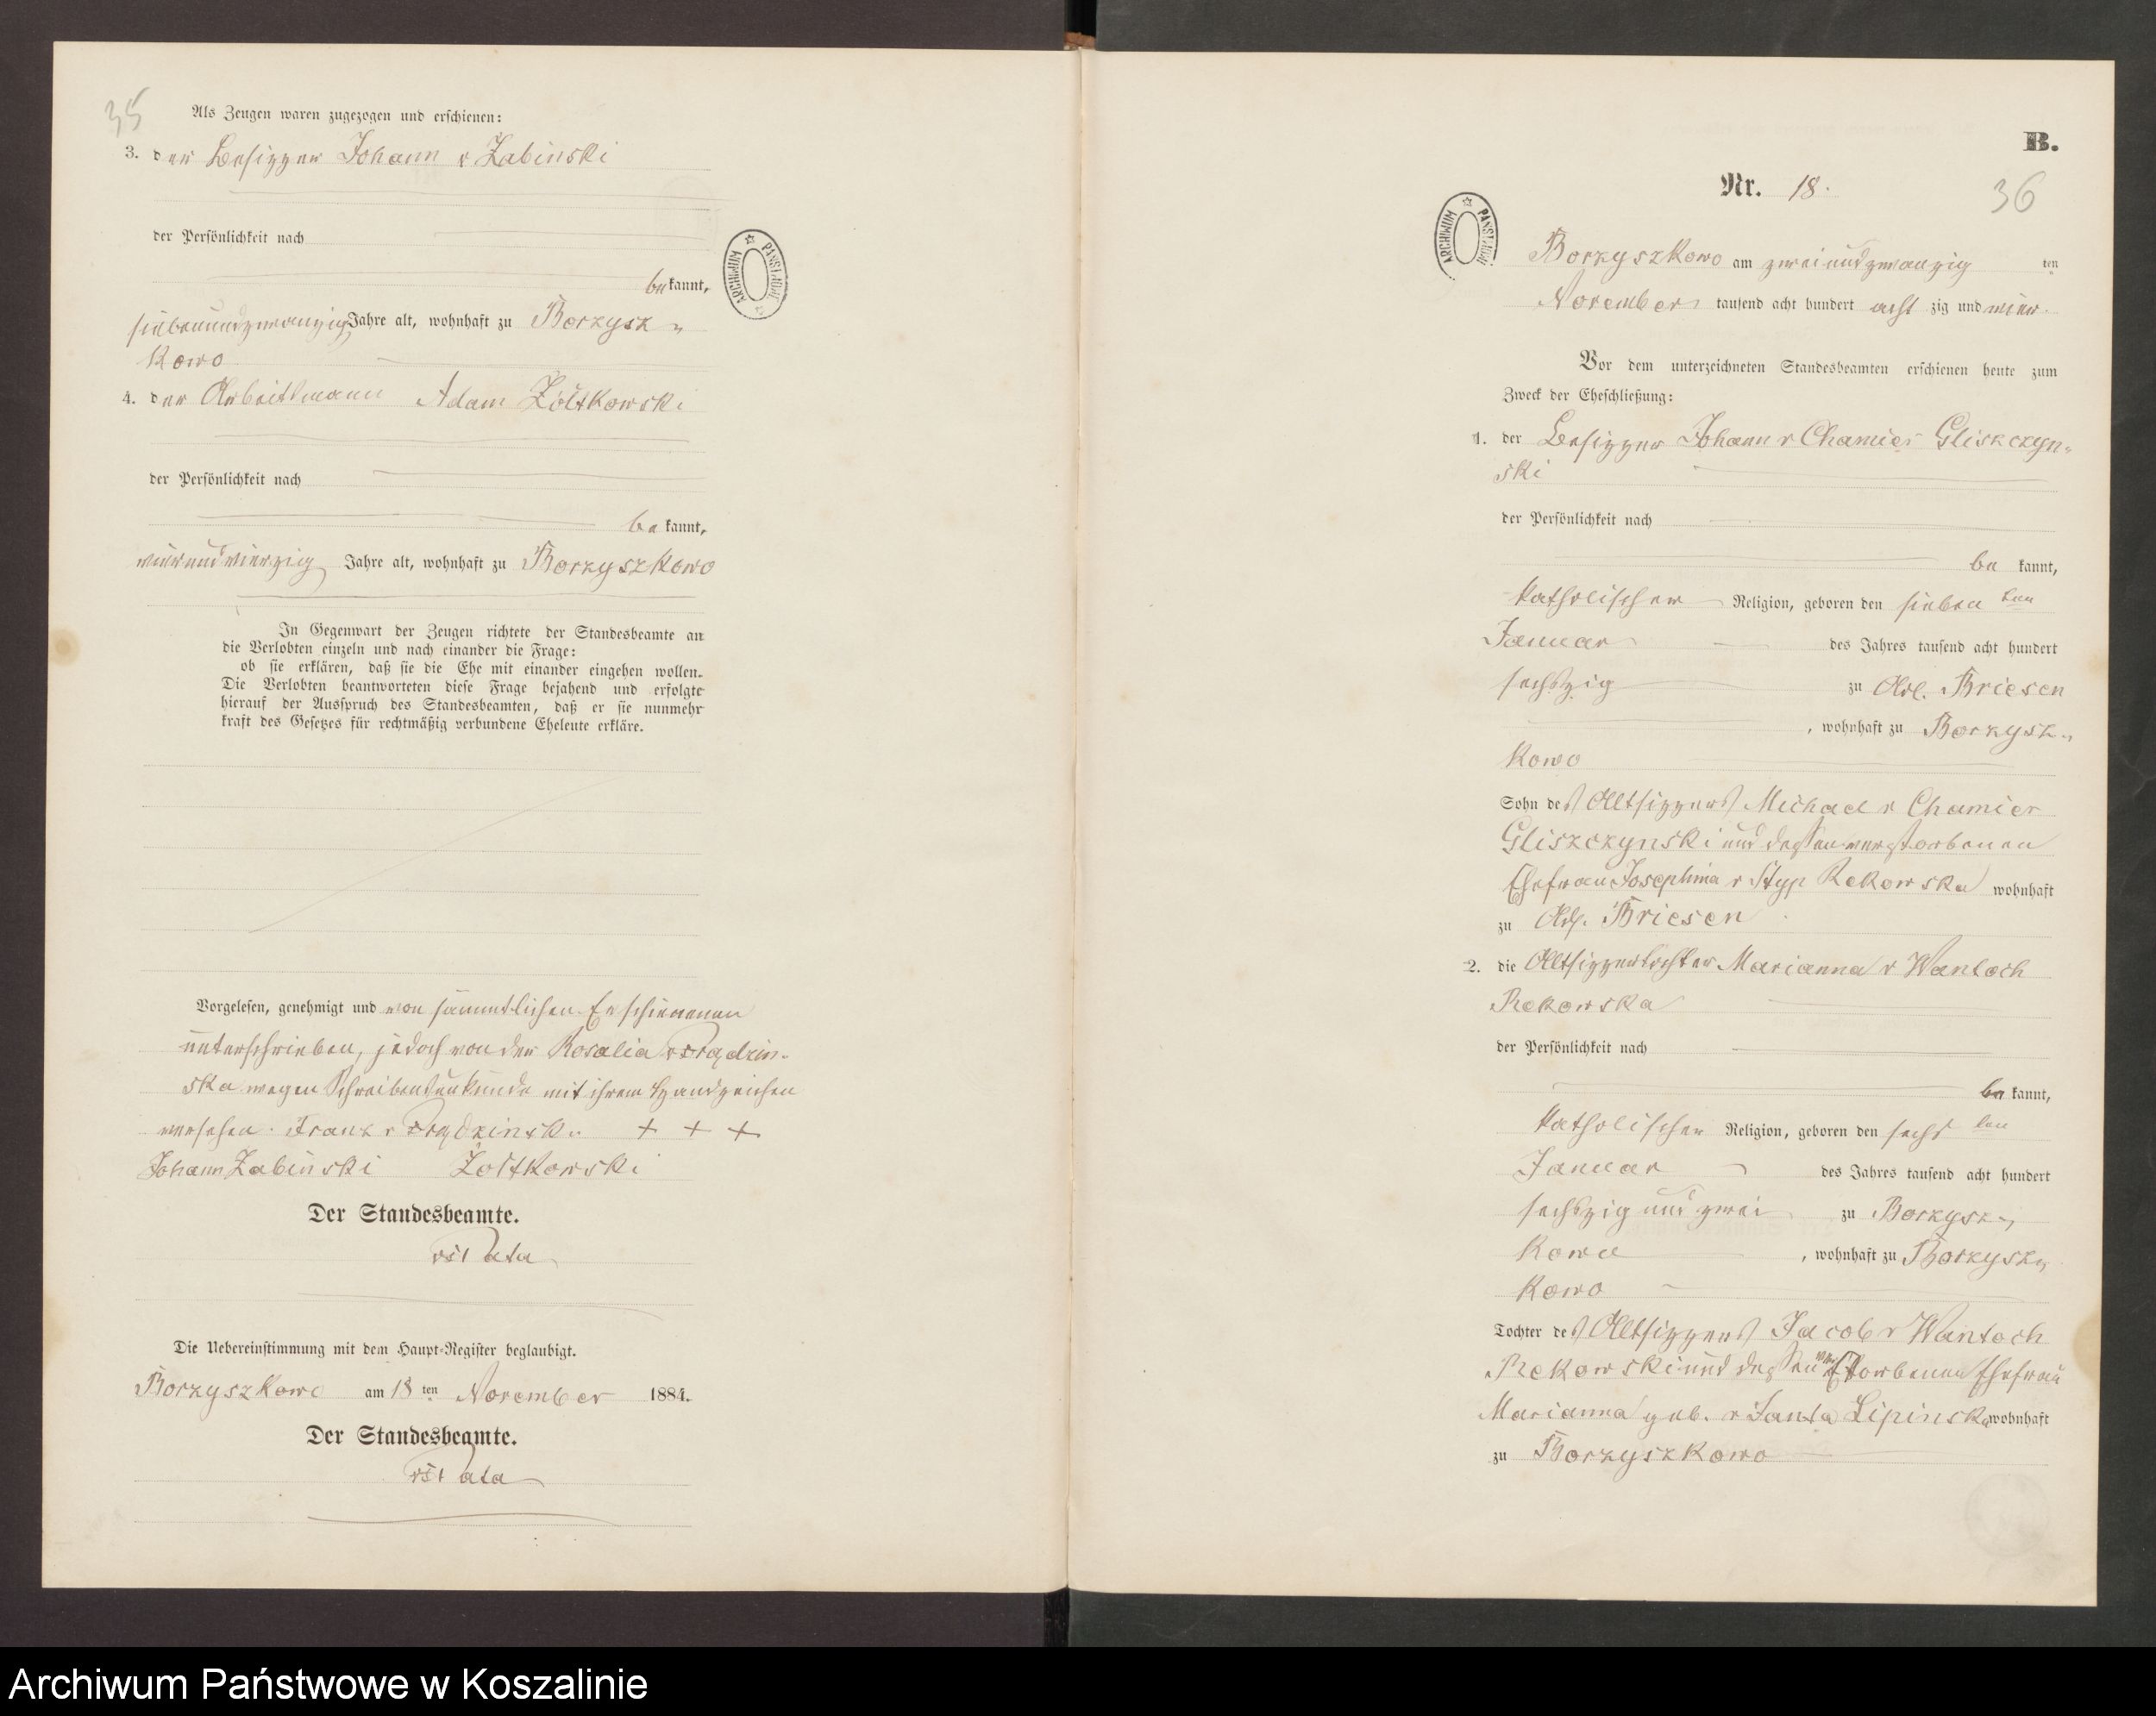 35
Als Zeugen waren zugezogen und erschienen:
3. der Besizzer Johann v Zabinski
der Persönlichkeit nach
be kannt,
siebenundzwanzig Jahre alt, wohnhaft zu Borzysz-
kowo
4. der Arbeitsmann Adam Żółtkowski
der Persönlichkeit nach
be kannt,
vierundvierzig Jahre alt, wohnhaft zu Borzyszkowo
In Gegenwart der Zeugen richtete der Standesbeamte an
die Verlobten einzeln und nach einander die Frage:
ob sie erklären, daß sie die Ehe mit einander eingehen wollen.
Die Verlobten beantworteten diese Frage bejahend und erfolgte
hierauf der Ausspruch des Standesbeamten, daß er sie nunmehr
kraft des Gesetzes für rechtmäßig verbundene Eheleute erkläre.
Vorgelesen, genehmigt und von sämmtlichen Erschienenen
unterschrieben, jedoch von der Rosalia v Prądzin-
ska wegen Schreibensunkunde mit ihrem Handzeichen
versehen. Franz v Prądzinski + + +
Johann Zabinski Żółtkowski
Der Standesbeamte.
Die Uebereinstimmung mit dem Haupt-Register beglaubigt.
Borzyszkowo am 18 ten November 1884.
Der Standesbeamte.
B.
Nr. 18.
36
ARCHIWUM PAŃSTWOWE
Borzyszkowo am zweiundzwanzig ten
November tausend acht hundert acht zig und vier.
Vor dem unterzeichneten Standesbeamten erschienen heute zum
Zweck der Eheschließung:
1. der Besizzer Johann v Chamier Gliszczyn-
ski
der Persönlichkeit nach
be kannt,
katholischer Religion, geboren den sieben ten
Januar des Jahres tausend acht hundert
sechszig zu Adl. Briesen
, wohnhaft zu Borzysz-
kowo
Sohn des Altsizzers Michael v Chamier
Gliszczynski und dessen verstorbenen
Ehefrau Josephina v Styp Rekowska wohnhaft
zu Adl. Briesen
2. die Altsizzertochter Marianna v Wantoch
Rekowska
der Persönlichkeit nach
be kannt,
katholischer Religion, geboren den sechs ten
Januar des Jahres tausend acht hundert
sechszig und zwei zu Borzysz-
kowo , wohnhaft zu Borzysz-
kowo
Tochter des Altsizzers Jacob v Wantoch
Rekowski und dessen verstorbenen Ehefrau
Marianna geb. v Janta Lipinska wohnhaft
zu Borzyszkowo
Archiwum Państwowe w Koszalinie